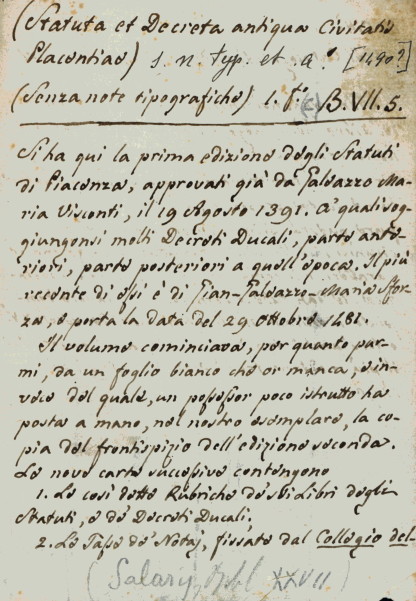 (Statuta et Decreta antiqua Civitatis
Placentiae) s. n. typ. et a.° [1490?]
(Senza note tipografiche) 1. f.° (c) B. VII. 5.
Si ha qui la prima edizione degli Statuti
di Piacenza, approvati già da Galeazzo Ma-
ria Visconti, il 19 Agosto 1391. A' quali sog-
giungonsi molti Decreti Ducali, parte ante-
riori, parte posteriori a quell'epoca. Il più
recente di essi è di Gian-Galeazzo-Maria Sfor-
za, e porta la data del 29 Ottobre 1481.
Il volume cominciava, per quanto par-
mi, da un foglio bianco che or manca, e in-
vece del quale, un possessor poco istrutto ha
posta a mano, nel nostro esemplare, la co-
pia del frontispizio dell'edizione seconda.
Le nove carte successive contengono
1. Le così dette Rubriche de' sei Libri degli
Statuti, e de' Decreti Ducali;
2. Le Tasse de' Notaj, fissate dal Collegio del-
(Salary, XXVII)